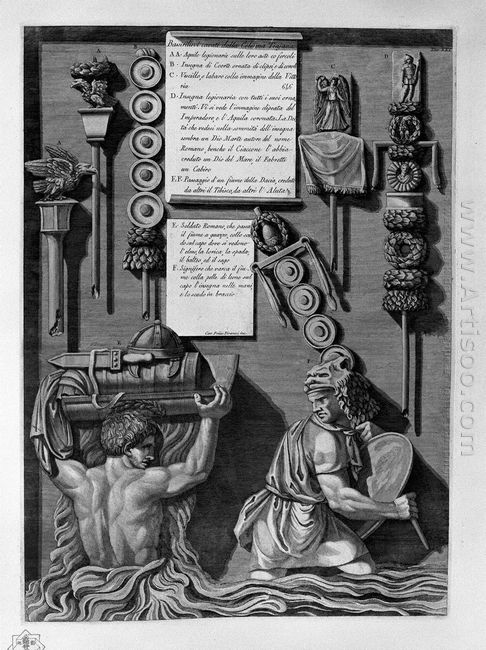 Bassirilievi cavati dalla Colonna Trajana
AA· Aquile legionarie sulle loro aste co' fiocchi
B· Insegna di Coorte ornata di clipei e di corone
C· Vessillo, o labaro colla immagine della Vitto
ria
D· Insegna legionaria con tutti i suoi orna
menti. Vi si vede l'immagine clipeata del
Imperadore, e l'Aquila coronata. La Dei
tà che vedesi nella sommità dell'insegna
sembra un Dio Marte autore del nome
Romano, benchè il Ciaccone l'abbia
creduto un Dio del Mare il Fabretti
un Cabiro
E.F. Passaggio d'un fiume della Dacia, creduto
da altri il Tibisco, da altri l'Aluta.
E· Soldato Romano, che passa
il fiume a guazzo, colle
sul capo dove si vedono
l'elmo, la lorica, la spada,
il balteo, ed il sago
F· Signifero che varca il
me colla pelle di leone sul
capo l'insegna nella mano
e lo scudo in braccio
Cav. Piranesi inc.
A
A
B
C
D
E
F
www.Artisoo.com